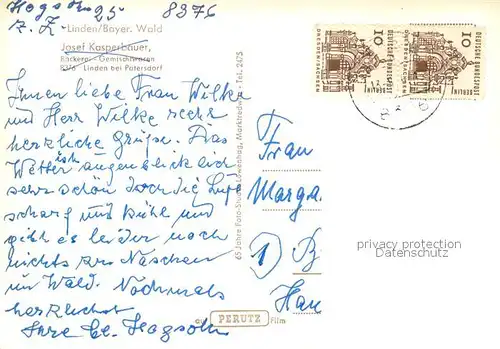 25 8376
Linden/Bayer. Wald
Josef Kasperbauer,
Bäckerei - Gemischtwaren
8376 Linden bei Patersdorf
Tel. 2475
Ihnen liebe Frau Wilke
und Herr Wilke recht
herzliche Grüße. Das
Wetter ist augenblicklich
sehr schön doch die Luft
scharf und kühl und
gibt es leider noch
nichts zu Naschen
im Wald. Nochmals
herzlichst
Ihre
65 Jahre Foto-Studio Löwenhag, Marktredwitz
auf PERUTZ Film
DEUTSCHE BUNDESPOST BERLIN
10
DRESDEN/SACHSEN
DEUTSCHE BUNDESPOST BERLIN
10
DRESDEN/SACHSEN
Frau
Marga
1 B
Han
privacy protection
Datenschutz